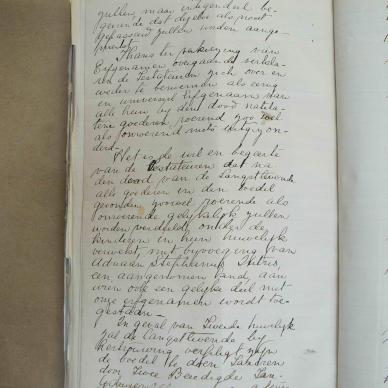 zullen, maar integendeel be-
geerende dat dezelve als proot
gepasseerd zullen worden aange-
Thans ter making van
Erfgenamen overgaande verkla-
ren de Testateuren zich over en
weder te benoemen als eenig
en universeel Erfgenaam van
alle hun by den dood natela-
tene goederen, roerend zoo wel
als onroerend niets uitgezon-
derd.
Het is de wil en begeerte
van de Testateuren dat na
den dood van de Langstlevende
alle goederen in den boedel
gevonden zoowel roerende als
onroerende gelykelyk zullen
worden verdeeld onder de
kinderen in hun huwelijk
verwekt, met byvoeging van
Adriaan Stephanus
een aangenomen kind, aan
wien ook een gelyke deel met
onze erfgenamen wordt toe-
gestaan.
In geval van Tweede huwelijk
zal de langstlevende by
hertrouwing verpligt zyn
de boedel te doen Taxeren
door Twee Beëedigde